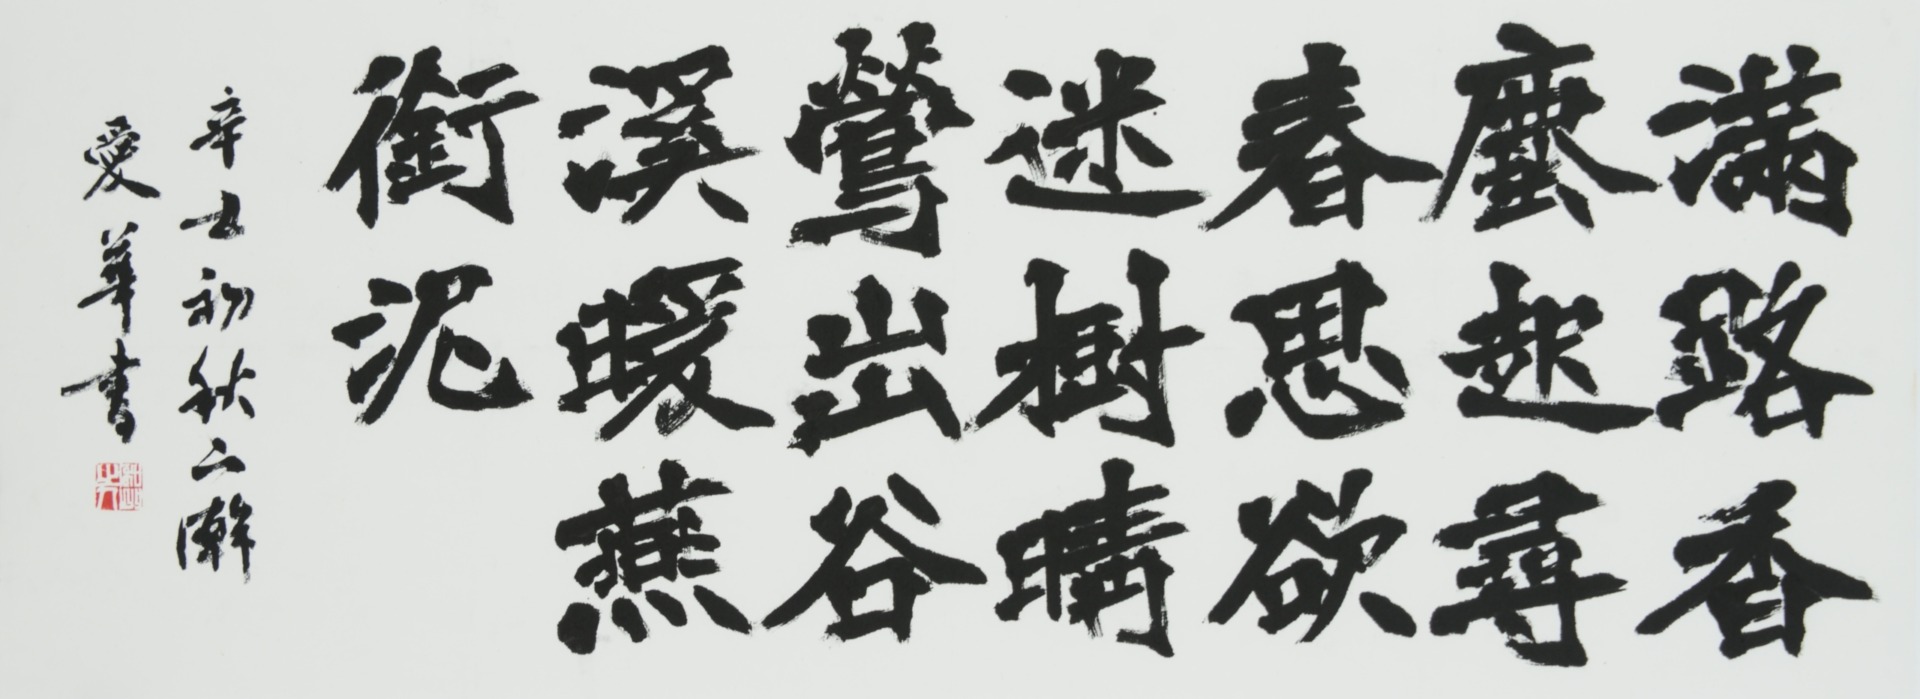 滿路香
塵起尋
春思欲
迷樹晴
鶯出谷
溪暖燕
銜泥
辛丑初秋六瀚
愛華書